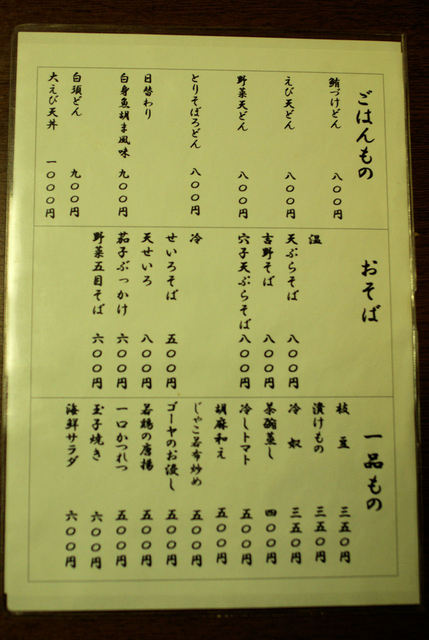 ごはんもの
鮪づけどん 八〇〇円
えび天どん 八〇〇円
野菜天どん 八〇〇円
とりそぼろどん 八〇〇円
日替わり
白身魚胡ま風味 九〇〇円
白須どん 九〇〇円
大えび天丼 一〇〇〇円
おそば
温
天ぷらそば 八〇〇円
吉野そば 八〇〇円
穴子天ぷらそば 八〇〇円
冷
せいろそば 五〇〇円
天せいろ 八〇〇円
茄子ぶっかけ 六〇〇円
野菜五目そば 六〇〇円
一品もの
枝豆 三五〇円
漬けもの 三五〇円
冷奴 三五〇円
茶碗蒸し 四〇〇円
冷しトマト 五〇〇円
胡麻和え 五〇〇円
じゃこ若布炒め 五〇〇円
ゴーヤのお浸し 五〇〇円
若鶏の唐揚 五〇〇円
一口かつれつ 五〇〇円
玉子焼き 六〇〇円
海鮮サラダ 六〇〇円